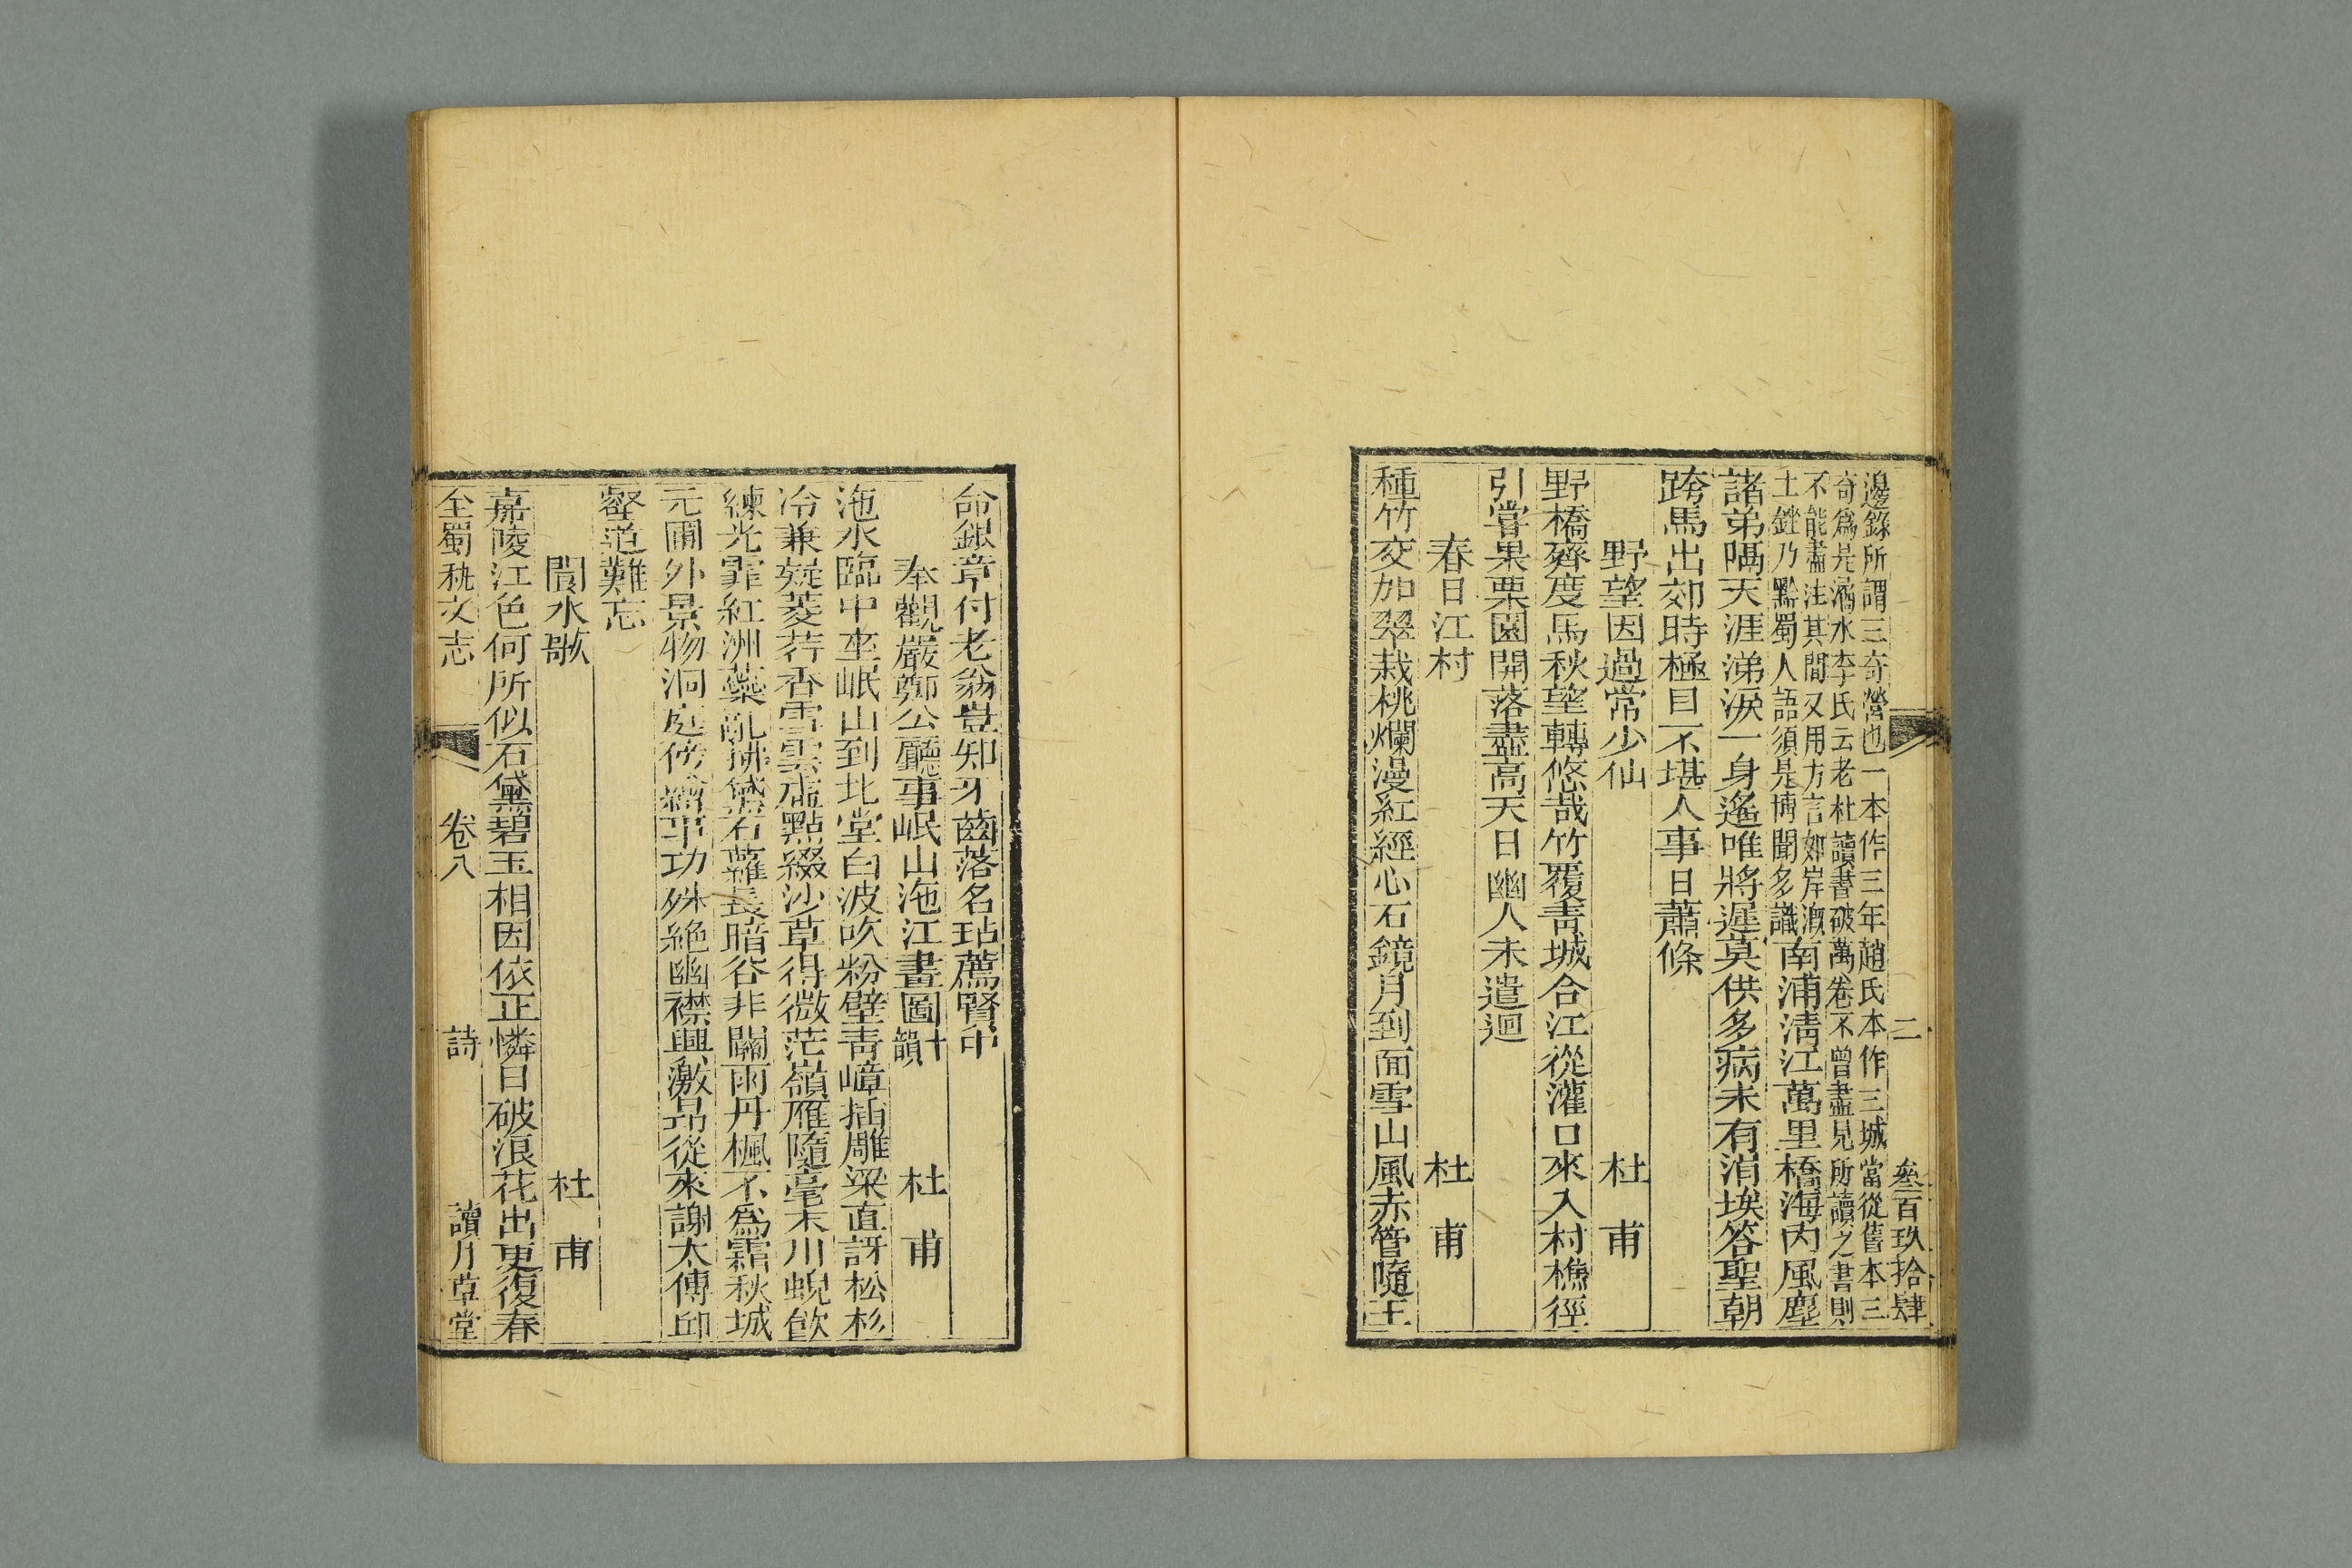 二　叁百玖拾肆
邊錄所謂三奇營也一本作三年趙氏本作三城當從舊本三
奇爲是灞水李氏云老杜讀書破萬卷不曾盡見所讀之書則
不能盡注其間又用方言如岸溉
土銼乃黔蜀人語須是博聞多識南浦清江萬里橋海內風塵
諸弟隔天涯涕淚一身遙唯將遲莫供多病未有涓埃答聖朝
跨馬出郊時極目不堪人事日蕭條
野望因過常少仙　杜甫
野橋齊度馬秋望轉悠哉竹覆青城合江從灌口來入村樵徑
引嘗果栗園開落盡高天日幽人未遣迴
春日江村　杜甫
種竹交加翠栽桃爛漫紅經心石鏡月到面雪山風赤管隨王
命銀章付老翁豈知牙齒落名玷薦賢中
奉觀嚴鄭公廳事岷山沲江畫圖十韻　杜甫
沲水臨中坐岷山到北堂白波吹粉壁青嶂插雕梁直訝松杉
冷兼疑菱荇香雪雲虛點綴沙草得微茫嶺雁隨毫末川蜺飲
練光霏紅洲蘂亂拂黛石蘿長暗谷非關雨丹楓不爲霜秋城
元圃外景物洞庭傍繪事功殊絶幽襟興激昂從來謝太傅邱
壑道難忘
閬水歌　杜甫
嘉陵江色何所似石黛碧玉相因依正憐日破浪花出更復春
全蜀秇文志　卷八　詩　讀月草堂